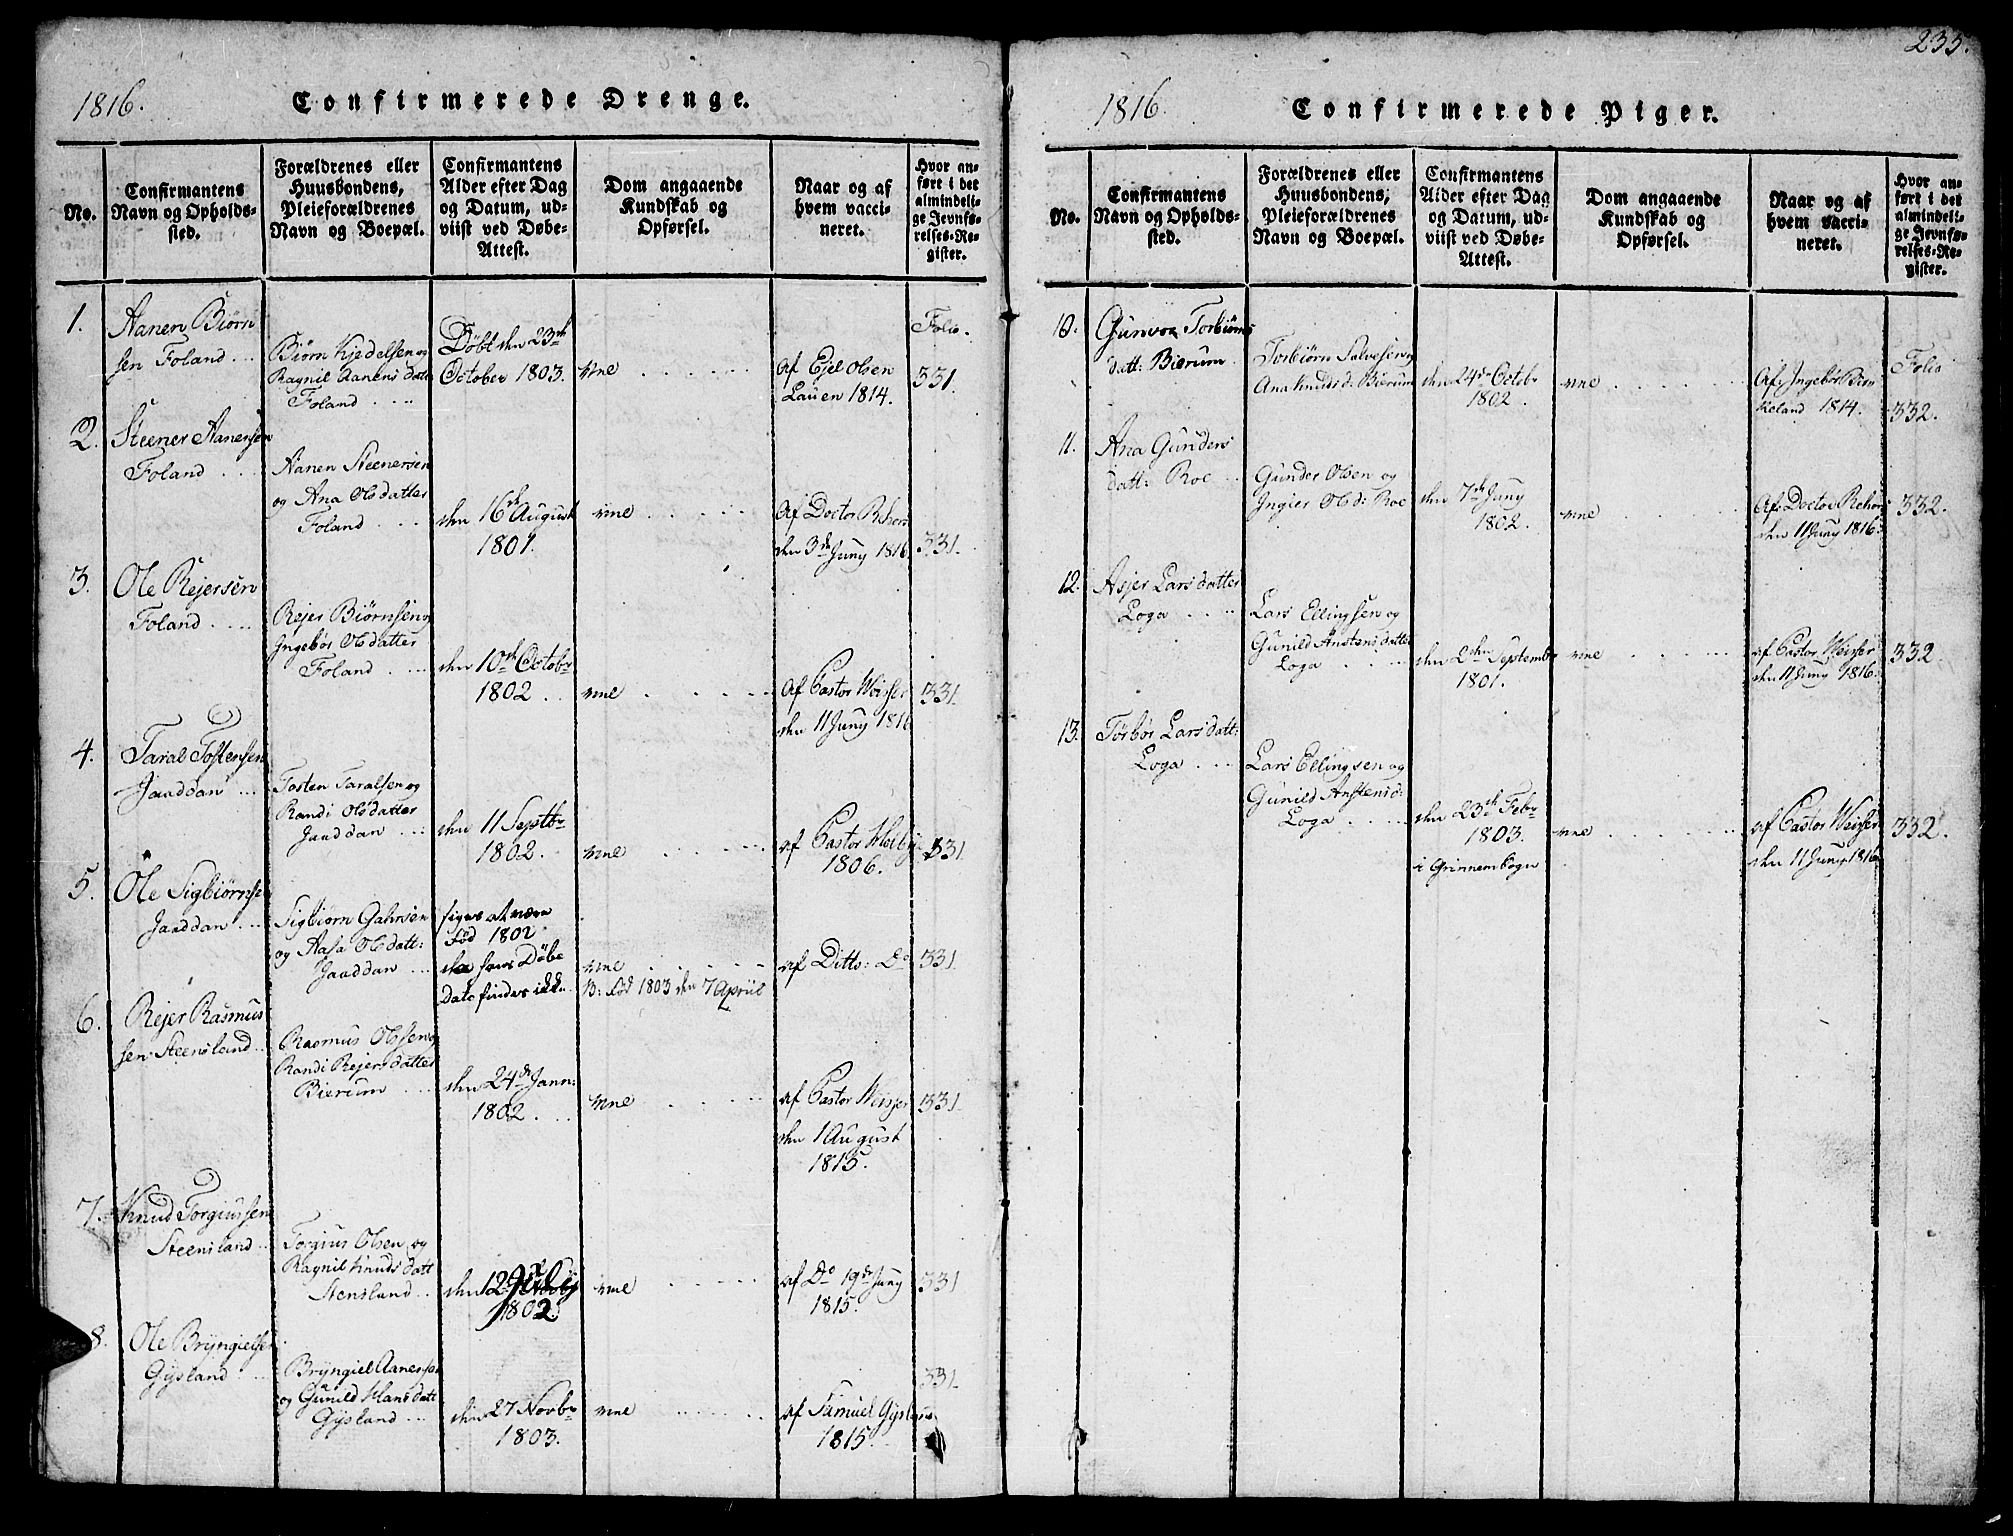 1816.
Confirmerede Drenge.
No.
Confirmantens
Navn og Opholds-
sted.
Forældrenes eller
Huusbondens,
Pleieforældrenes
Navn og Boepæl.
Confirmantens
Alder efter Dag
og Datum, ud-
viist ved Døbe-
Attest.
Dom angaaende
Kundskab og
Opførsel.
Naar og af
hvem vacci-
neret.
Hvor an-
ført i det
almindeli-
ge Jevnfø-
relses-Re-
gister.
1.
Aanen Biørn
sen Foland
Biørn Kjedelsen og
Ragnil Aanensdatr
Foland
Døbt den 23de
October 1803.
Af Ejel Olsen
Lauen 1814.
Folio.
331.
2.
Steener Aanensen
Foland
Aanen Steenersen
og Ana Olsdatter
Foland
den 16de August
1801.
Af Doctor
den 3de Juny 1816.
331.
3.
Ole Rejersen
Foland
Rejer Biørnsen og
Ingebor Olsdatter
Foland
den 10de Octobr
1802
Af Pastor
den 11 Juny 1816
331.
4.
Taral Tostensen
Jaaddan
Tosten Taralsen og
Randi Olsdatter
Jaaddan
den 11 Septbr
1802.
af Pastor
1806.
331.
5.
Ole Sigbiørnse
Jaaddan
Sigbiørn
og Aasa Olsdatt:
Jaaddan
siges at være
fød 1802.
hans Døbe
Dato findes ikke
B: fød 1803 den 7 Apriil
af Ditto: Do
331.
6.
Rejer Rasmus
sen Steensland
Rasmus Olssen og
Randi Rejersdatter
Bierum
den 24de Jann:
1802.
af Pastor
den 1 August
1815.
331.
7.
Knud Torgiussen
Steensland
Torgius Olsen og
Ragnil Knudsdatt
Stensland
den 12
1802
af Do 19de Juny
1815.
331
8.
Ole Bryngielsen
Gysland
Bryngiel Aanensen
og Gunild Hansdatt
Gysland
den 27 Novbr
1803.
af Samuel
1815.
331.
235.
1816.
Confirmerede Piger.
No.
Confirmantens
Navn og Opholds-
sted.
Forældrenes eller
Huusbondens,
Pleieforældrenes
Navn og Boepæl.
Confirmantens
Alder efter Dag
og Datum, ud-
viist ved Døbe-
Attest.
Dom angaaende
Kundskab og
Opførsel.
Naar og af
hvem vacci-
neret.
Hvor an-
ført i det
almindeli-
ge Jevnfø-
relses-Re-
gister.
10.
Gunvor Torbiørns
datt: Bierum
Torbiørn Salvesen og
Ana Knudsd: Bierum
den 24de Octobr
1802.
Af Ingebor Birn
keland 1814.
Folio
332.
11.
Ana Gunders
datt: Roe
Gunder Olsen og
Ingier Olsd: Roe
den 7de Juny
1802.
Af Doctor
den 11 Juny 1816.
332.
12.
Asjer Larsdatter
Loga
Lars Ellingsen og
Gunild Anstensdatter
Loga
den 2den Septembr
1801.
af Pastor
den 11 Juny 1816.
332.
13.
Torbor Larsdatt:
Loga
Lars Ellingsen og
Gunild Anstensd:
Loga
den 23de Febr
1803.
i
af Pastor
den 11 Juny 1816
332.